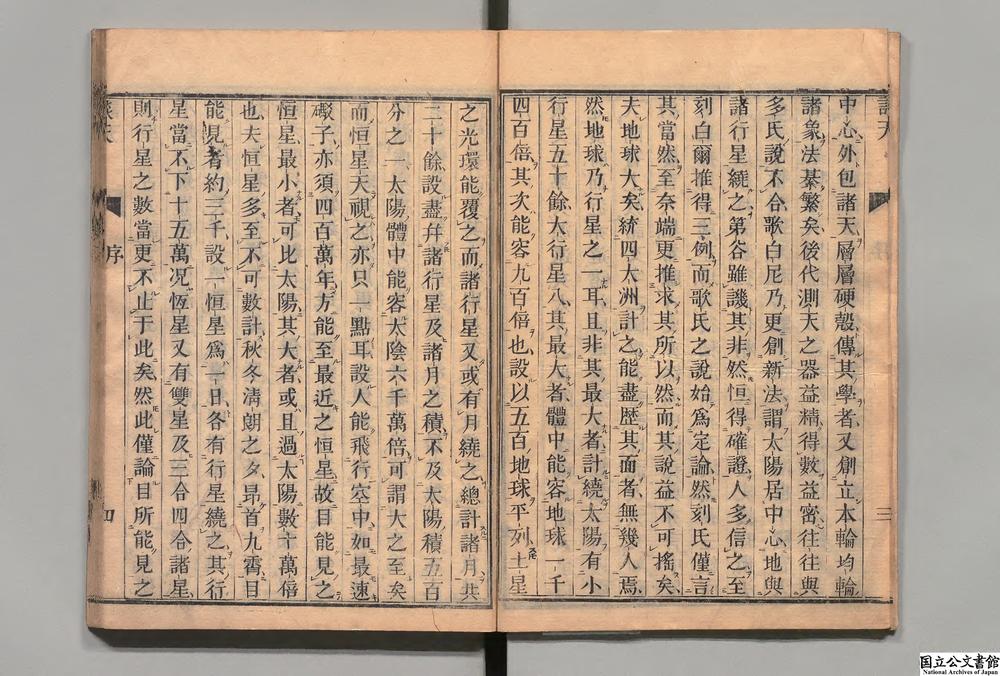 中心外包諸天層層硬殼傳其學者又創立本輪均輪
諸象法綦繁矣後代測天之器益精得數益密往往與
多氏說不合歌白尼乃更創新法謂太陽居中心地與
諸行星繞之第谷雖譏其非然恒得確證人多信之至
刻白爾推得三例而歌氏之說始爲定論然刻氏僅言
其當然至奈端更推求其所以然而其說益不可搖矣
夫地球大矣統四大洲計之能盡歷其面者無幾人焉
然地球乃行星之一耳且非其最大者計繞太陽有小
行星五十餘大行星八其最大者體中能容地球一千
四百倍其次能容九百倍也設以五百地球平列土星
之光環能覆之而諸行星又或有月繞之總計諸月共
二十餘設盡并諸行星及諸月之積不及太陽積五百
分之一太陽體中能容太陰六千萬倍可謂大之至矣
而恒星天視之亦只一點耳設人能飛行空中如最速
礮子亦須四百萬年方能至最近之恒星故目能見之
恒星最小者可比太陽其大者或且過太陽數十萬倍
也夫恒星多至不可數計秋冬清朗之夕昂首九霄目
能見者約三千設一恒星爲一日各有行星繞之其行
星當不下十五萬况恆星又有雙星及三合四合諸星
則行星之數當更不止于此矣然此僅論目所能見之
序
四
三
国立公文書館
National Archives of Japan